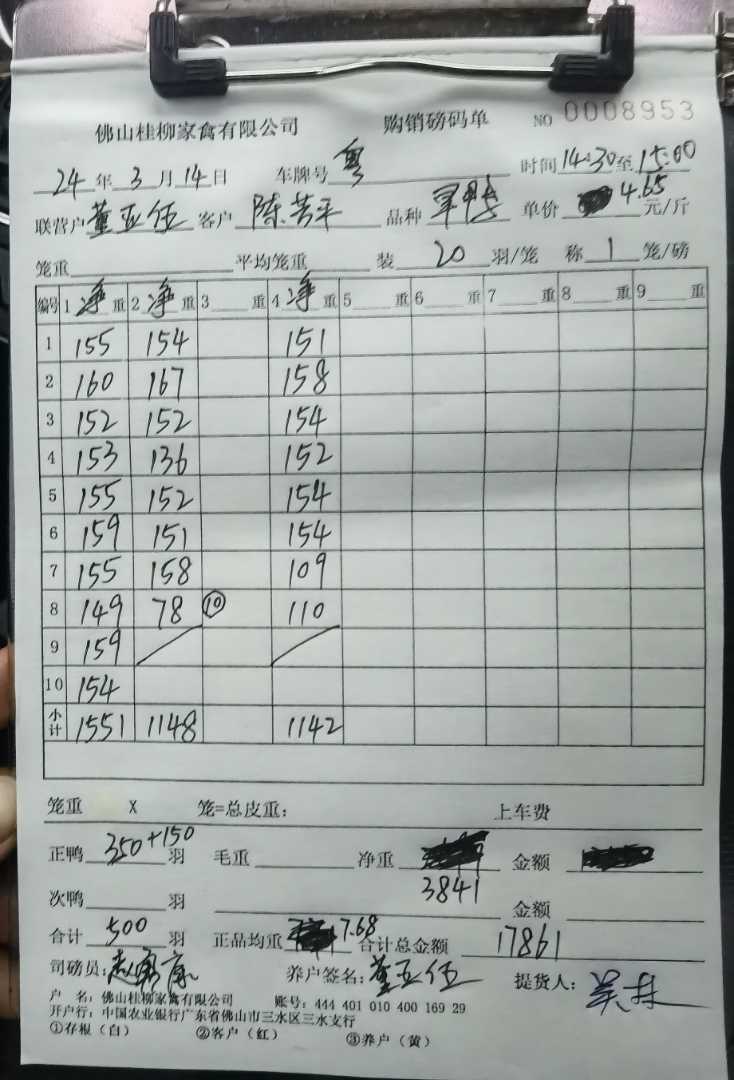 佛山桂柳家禽有限公司 购销磅码单 NO 0008953
24 年 3 月 14 日 车牌号 粤 时间 14:30 至 15:00
联营户 董亚伍 客户 陈芳平 品种 单价 4.65 元/斤
笼重 平均笼重 装 20 羽/笼 称 1 笼/磅
编号 1 净 重 2 净 重 3 重 4 净 重 5 重 6 重 7 重 8 重 9 重
1 155 154 151
2 160 167 158
3 152 152 154
4 153 136 152
5 155 152 154
6 159 151 154
7 155 158 109
8 149 78 ⑩ 110
9 159
10 154
小计 1551 1148 1142
笼重 X 笼=总皮重： 上车费
正鸭 350+150 羽 毛重 净重 金额
3841
次鸭 羽 金额
合计 500 羽 正品均重 7.68 合计总金额 17861
司磅员： 养户签名：董亚伍 提货人：
户 名：佛山桂柳家禽有限公司 账号：444 401 010 400 169 29
开户行：中国农业银行广东省佛山市三水区三水支行
①存根（白） ②客户（红） ③养户（黄）